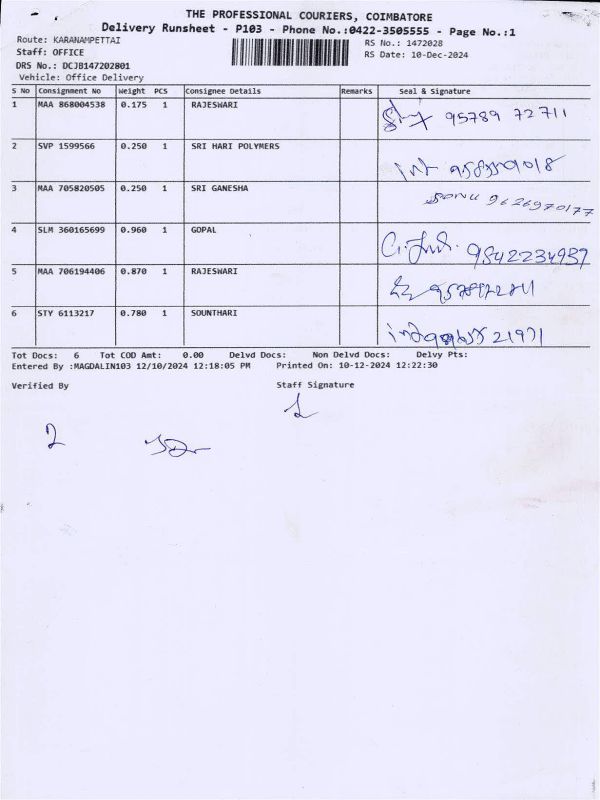 THE PROFESSIONAL COURIERS, COIMBATORE
Delivery Runsheet - P103 - Phone No.:0422-3505555 - Page No.:1
Route: KARANAMPETTAI
RS No.: 1472028
Staff: OFFICE
RS Date: 10-Dec-2024
DRS No.: DCJB147202801
Vehicle: Office Delivery
S No Consignment No Weight PCS Consignee Details Remarks Seal & Signature
1 MAA 868004538 0.175 1 RAJESWARI
95789 72711
2 SVP 1599566 0.250 1 SRI HARI POLYMERS
3 MAA 705820505 0.250 1 SRI GANESHA
SONU 9626970177
4 SLM 360165699 0.960 1 GOPAL
9842234937
5 MAA 706194406 0.870 1 RAJESWARI
6 STY 6113217 0.780 1 SOUNTHARI
Tot Docs: 6 Tot COD Amt: 0.00 Delvd Docs: Non Delvd Docs: Delvy Pts:
Entered By :MAGDALIN103 12/10/2024 12:18:05 PM Printed On: 10-12-2024 12:22:30
Verified By Staff Signature